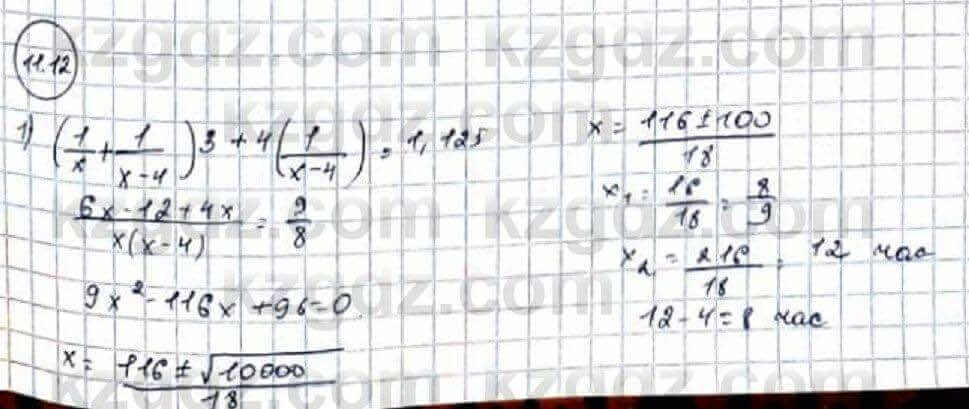 11.12
1) (1/x + 1/(x-4))3 + 4(1/(x-4)) = 1,125
(6x-12+4x)/(x(x-4)) = 9/8
9x² - 116x + 96 = 0.
x = (116 ± √10000)/18
x = (116 ± 100)/18
x₁ = 16/18 = 8/9
x₂ = 216/18 = 12 час
12 - 4 = 8 час
kzgdz.com kzgdz.com
kzgdz.com
kzgdz.com kzgdz.com
kzgdz.com
kzgdz.com kzgdz.com